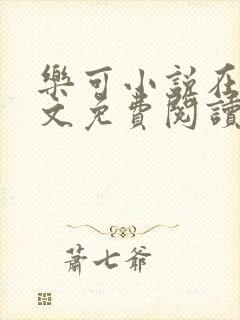 樂可小說在
文免費閱讀
蕭七爺